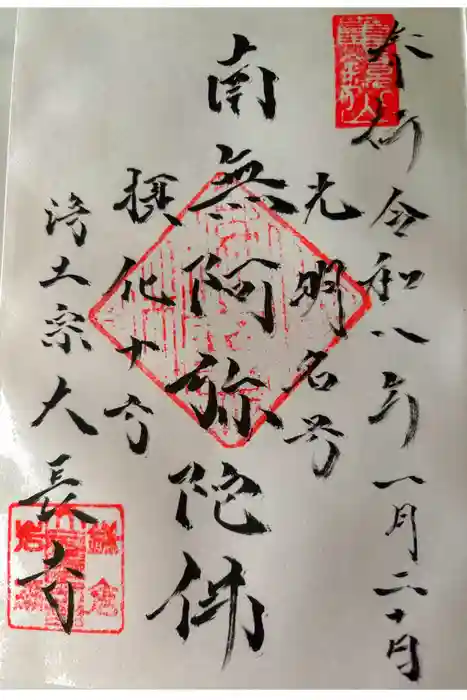 奉拝 令和八年一月二十日
光明名号
南無阿弥陀佛
摂化十方
浄土宗 大長寺
鎌倉
岩瀬